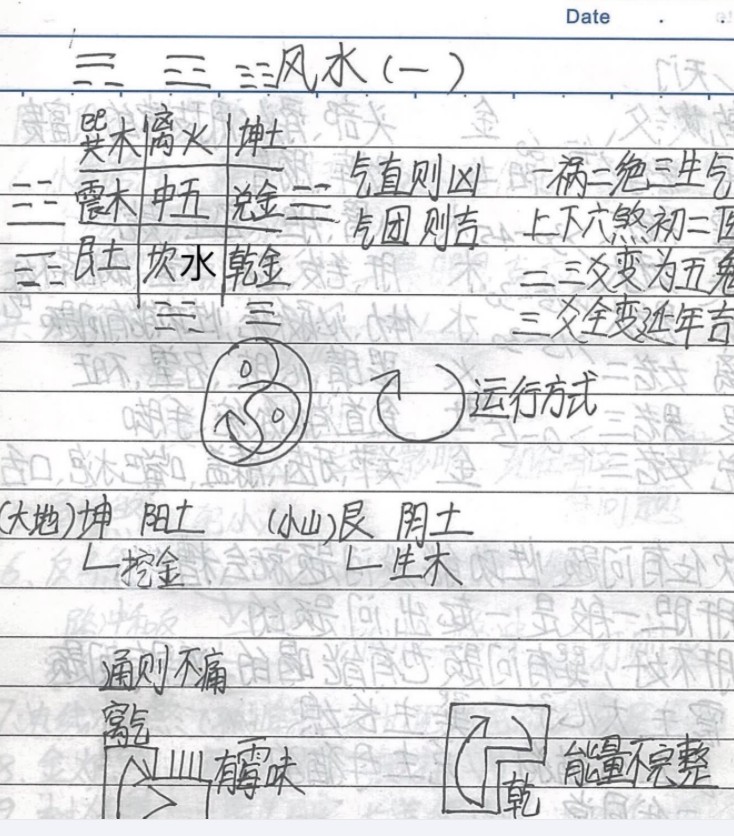 Date
风水(一)
巽木 离火 坤土
震木 中五 兑金
艮土 坎水 乾金
气直则凶 一祸二绝三生气
气团则吉 上下六煞初二
二三爻变为五鬼
三爻全变延年吉
运行方式
(大地)坤 阳土 (小山)艮 阴土
挖金 生木
通则不痛
离气
有霉味
能量不完整
乾